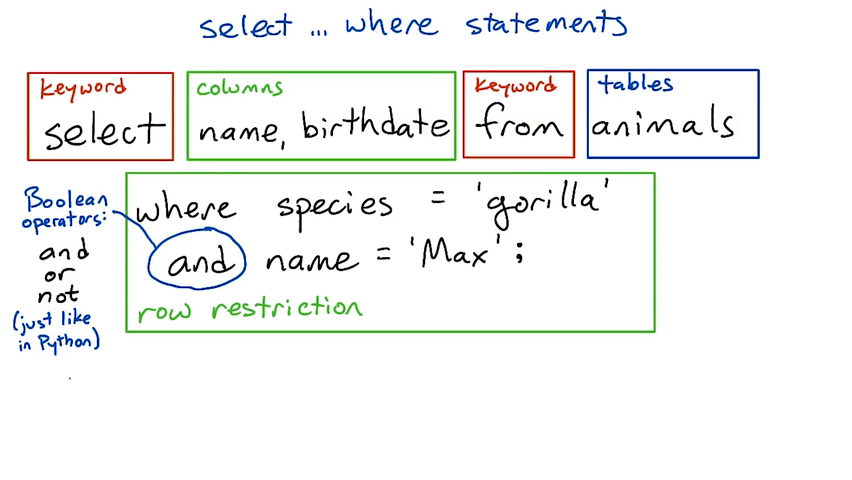 select ... where statements
keyword
select
columns
name, birthdate
keyword
from
tables
animals
Boolean
operators:
and
or
not
(just like
in Python)
where species = 'gorilla'
and name = 'Max' ;
row restriction